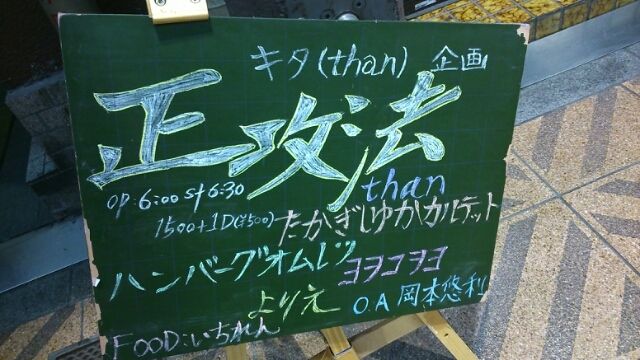 キタ(than) 企画
正攻法
OP:6:00 st 6:30
1500+1D(¥500)
than
たかぎしゆかカルテット
ハンバーグオムレツ
ヨヲコヲヨ
よりえ
O.A 岡本悠利
FOOD:いちれん